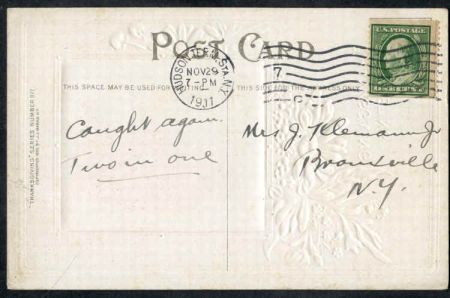 POST CARD
HUDSON TERM. STA. N.Y.
NOV 29
7 - PM
1911
7
U.S. POSTAGE
THIS SPACE MAY BE USED FOR
THIS SIDE FOR THE ADDRESS
"THANKSGIVING" SERIES NUMBER
Caught again.
Two in one
Mrs J. Klemann Jr
Bronxville
N.Y.